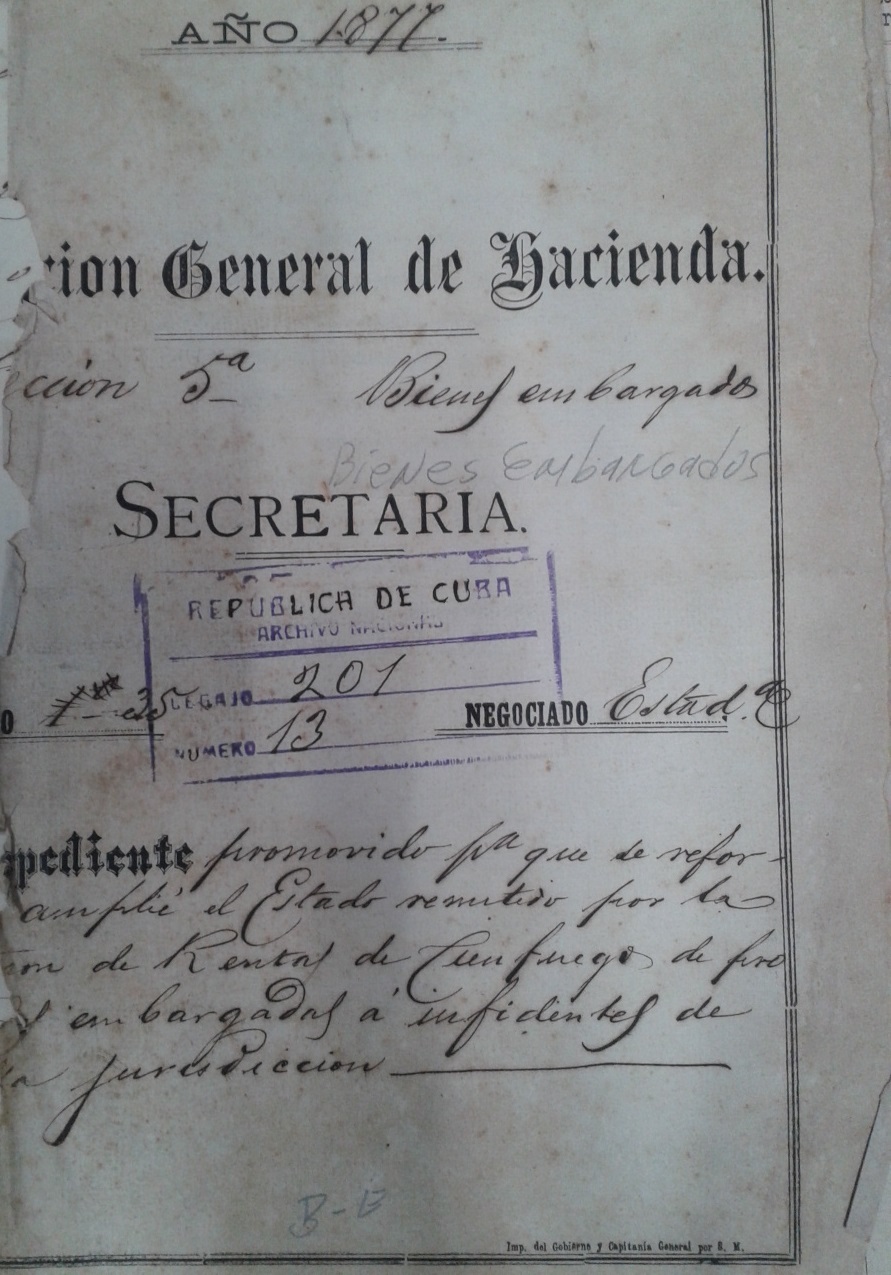 AÑO 1877.
cion General de Hacienda.
ccion 5ª Bienes embargados
Bienes Embargados
SECRETARIA.
REPUBLICA DE CUBA
ARCHIVO NACIONAL
LEGAJO 201
O 35 NEGOCIADO Estad.ca
NUMERO 13
pediente promovido pª que se refor-
amplie el Estado remitido por la
on de Rentas de Cienfuegos de pro
s embargadas á infidentes de
a jurisdiccion
B-E
Imp. del Gobierno y Capitanía General por S. M.